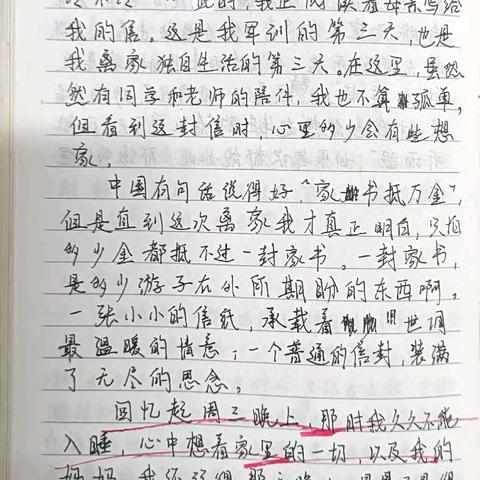 此时，我正阅读着母亲写给
我的信。这是我军训的第三天，也是
我离家独自生活的第三天。在这里，虽然
然有同学和老师的陪伴，我也不算孤单，
但看到这封信时，心里多少会有些想
家。
中国有句话说得好“家书抵万金”，
但是直到这次离家我才真正明白，只怕
多少金都抵不过一封家书。一封家书，
是多少游子在外所期盼的东西啊。
一张小小的信纸，承载着世间
最温暖的情意；一个普通的信封，装满
了无尽的思念。
回忆起周三晚上，那时我久久不能
入睡，心中想着家里的一切，以及我的
妈妈